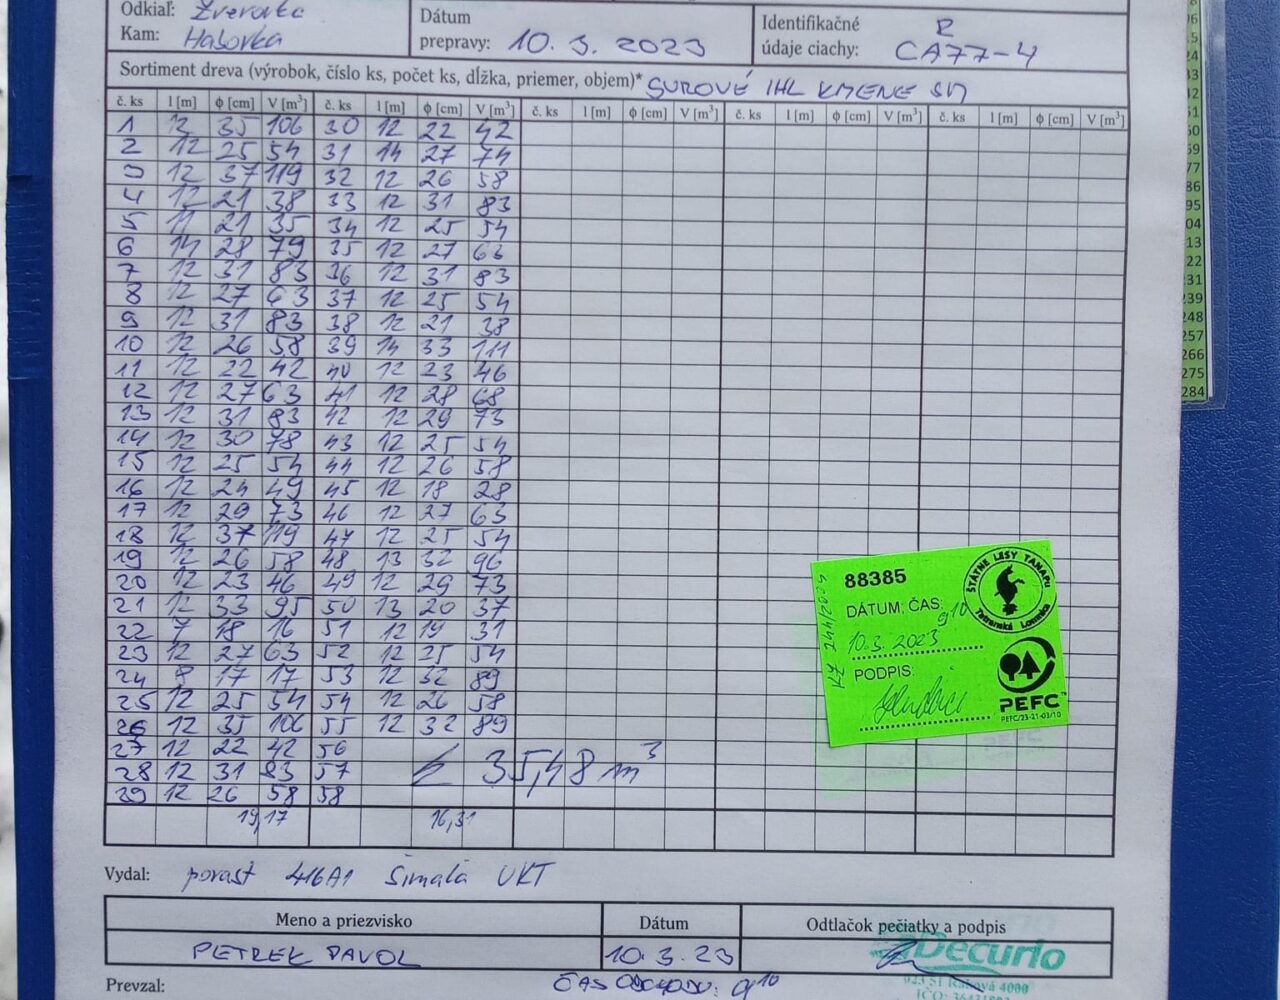 Odkiaľ: Zverovka
Kam: Habovka
Dátum prepravy: 10. 3. 2023
Identifikačné údaje ciachy: R CA77-4
Sortiment dreva (výrobok, číslo ks, počet ks, dĺžka, priemer, objem)* SUROVÉ IHL KMENE SM
č. ks l [m] ϕ [cm] V [m³] č. ks l [m] ϕ [cm] V [m³] č. ks l [m] ϕ [cm] V [m³] č. ks l [m] ϕ [cm] V [m³] č. ks l [m] ϕ [cm] V [m³]
1 35 106 30 12 22 42
2 12 25 54 31 14 27 74
3 12 37 119 32 12 26 58
4 12 21 38 33 12 31 83
5 11 21 35 34 12 25 54
6 14 28 79 35 12 27 63
7 12 31 83 36 12 31 83
8 12 27 63 37 12 25 54
9 12 31 83 38 12 21 38
10 12 26 58 39 14 33 111
11 12 22 42 40 12 23 46
12 12 27 63 41 12 28 68
13 12 31 83 42 12 29 73
14 12 30 78 43 12 25 54
15 12 25 54 44 12 26 58
16 12 24 49 45 12 18 28
17 12 29 73 46 12 27 63
18 12 37 119 47 12 25 54
19 12 26 58 48 13 32 96
20 12 23 46 49 12 29 73
21 12 33 95 50 13 20 37
22 7 18 16 51 12 19 31
23 12 27 63 52 12 25 54
24 8 17 17 53 12 32 89
25 12 25 54 54 12 26 58
26 12 35 106 55 12 32 89
27 12 22 42 56
28 12 31 83 57 35,48 m³
29 12 26 58 58
19,17 16,31
88385
DÁTUM, ČAS: 9¹⁰
10.3. 2023
PODPIS:
ŠTÁTNE LESY TANAPu
Tatranská Lomnica
PEFC™
PEFC/23-21-03/10
Vydal: porast 416A1 Šimalá VKT
Meno a priezvisko Dátum Odtlačok pečiatky a podpis
PETREK PAVOL 10.3.23 Decurio
023 51 Raková 4000
Prevzal: ČAS ODCHODU: 9¹⁰
IČO:
77
86
95
04
13
22
231
239
248
257
266
275
284